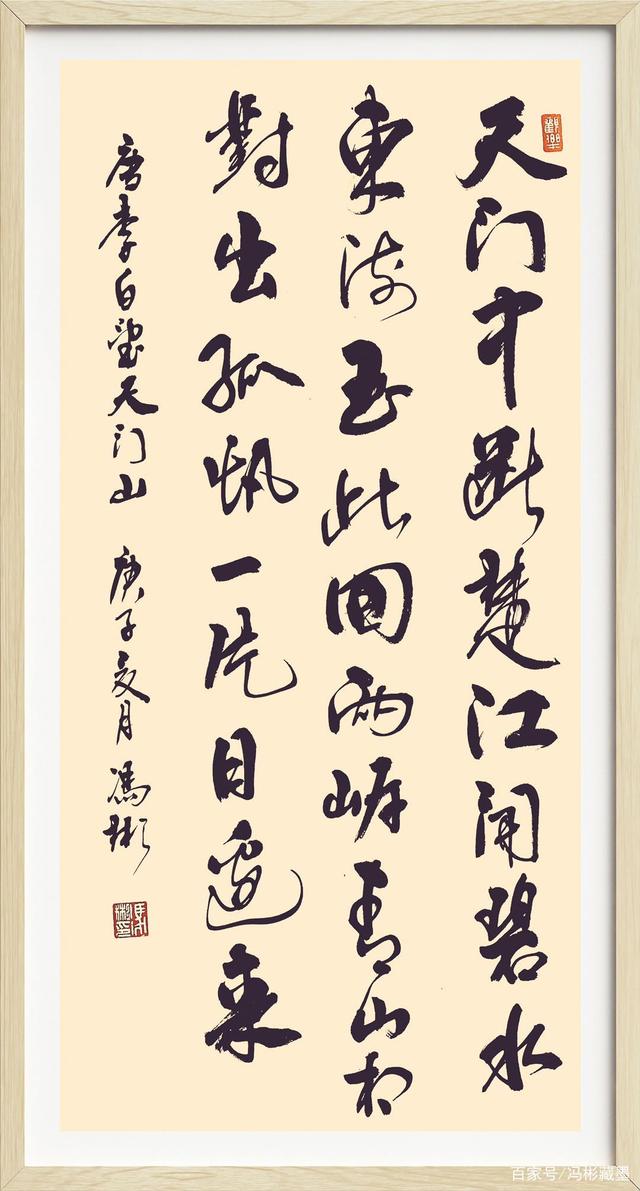 天门中斷楚江開碧水
東流至此回兩岸青山相
對出孤帆一片日邊來
唐李白望天门山 庚子夏月 馮彬
百家号/冯彬藏墨